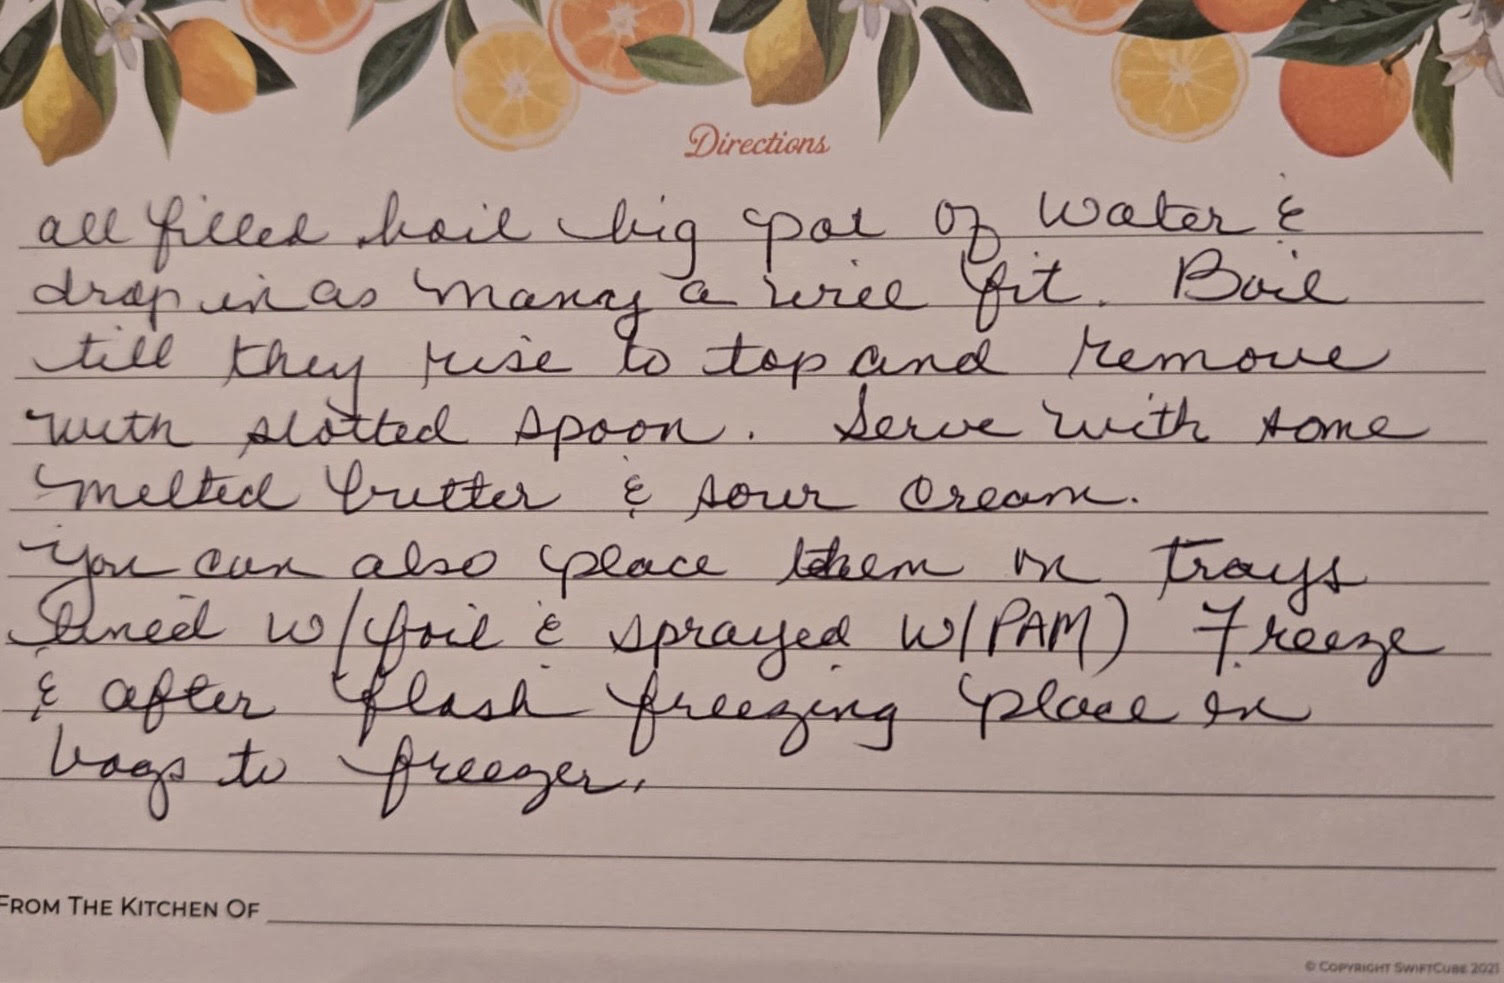 Directions
all filled boil big pot of water &
drop in as many a will fit. Boil
till they rise to top and remove
with slotted spoon. Serve with some
melted butter & sour cream.
You can also place them on trays
lined w/foil & sprayed w/PAM) Freeze
& after flash freezing place in
bags to freezer.
FROM THE KITCHEN OF
© COPYRIGHT SWIFTCUBE 2021